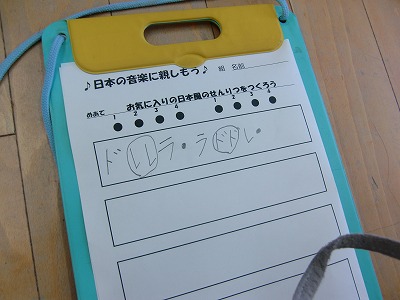 ♪日本の音楽に親しもう♪ 組 名前
めあて お気に入りの日本風のせんりつをつくろう
1 2 3 4 1 2 3 4
● ● ● ● ● ● ● ●
ド レレ ラ・ラ ドド レ・